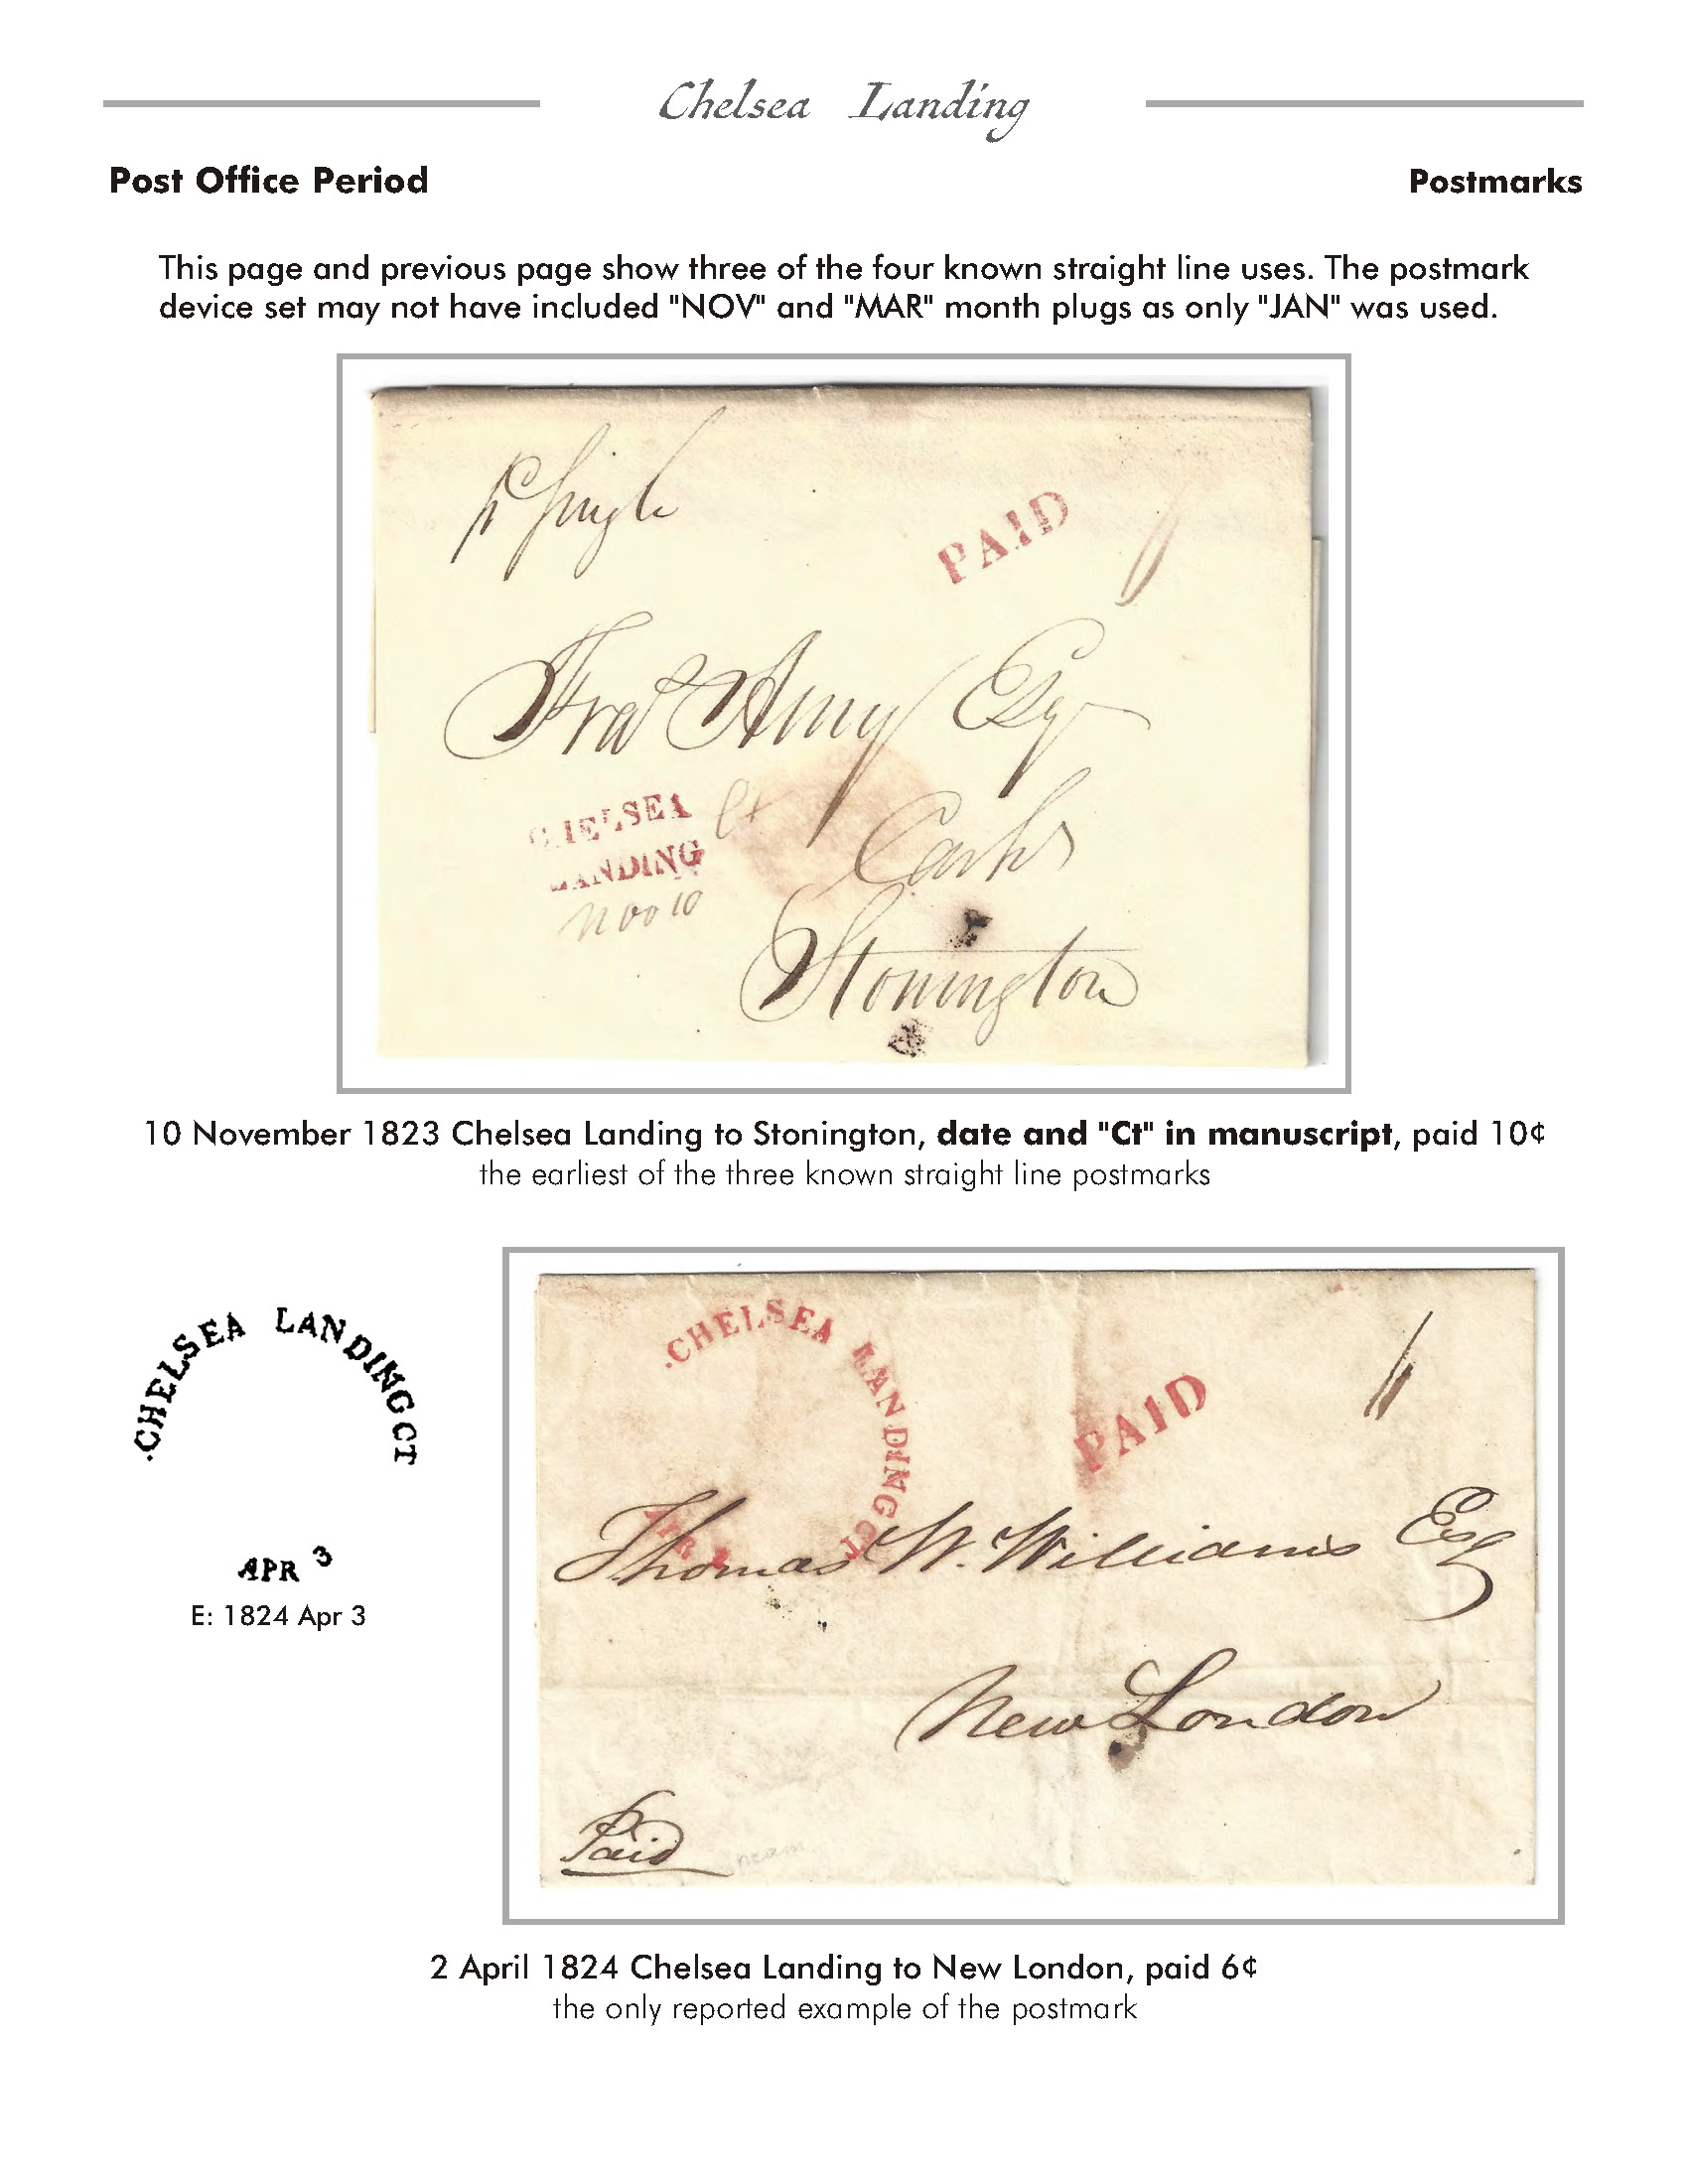 Chelsea Landing
Post Office Period
Postmarks
This page and previous page show three of the four known straight line uses. The postmark
device set may not have included "NOV" and "MAR" month plugs as only "JAN" was used.
PAID
Esq
CHELSEA Ct
LANDING
Nov 10
Stonington
10 November 1823 Chelsea Landing to Stonington, date and "Ct" in manuscript, paid 10¢
the earliest of the three known straight line postmarks
.CHELSEA LANDING CT
APR 3
E: 1824 Apr 3
.CHELSEA LANDING CT
APR
PAID
6
Thomas W. Williams Esq
New London
Paid
2 April 1824 Chelsea Landing to New London, paid 6¢
the only reported example of the postmark